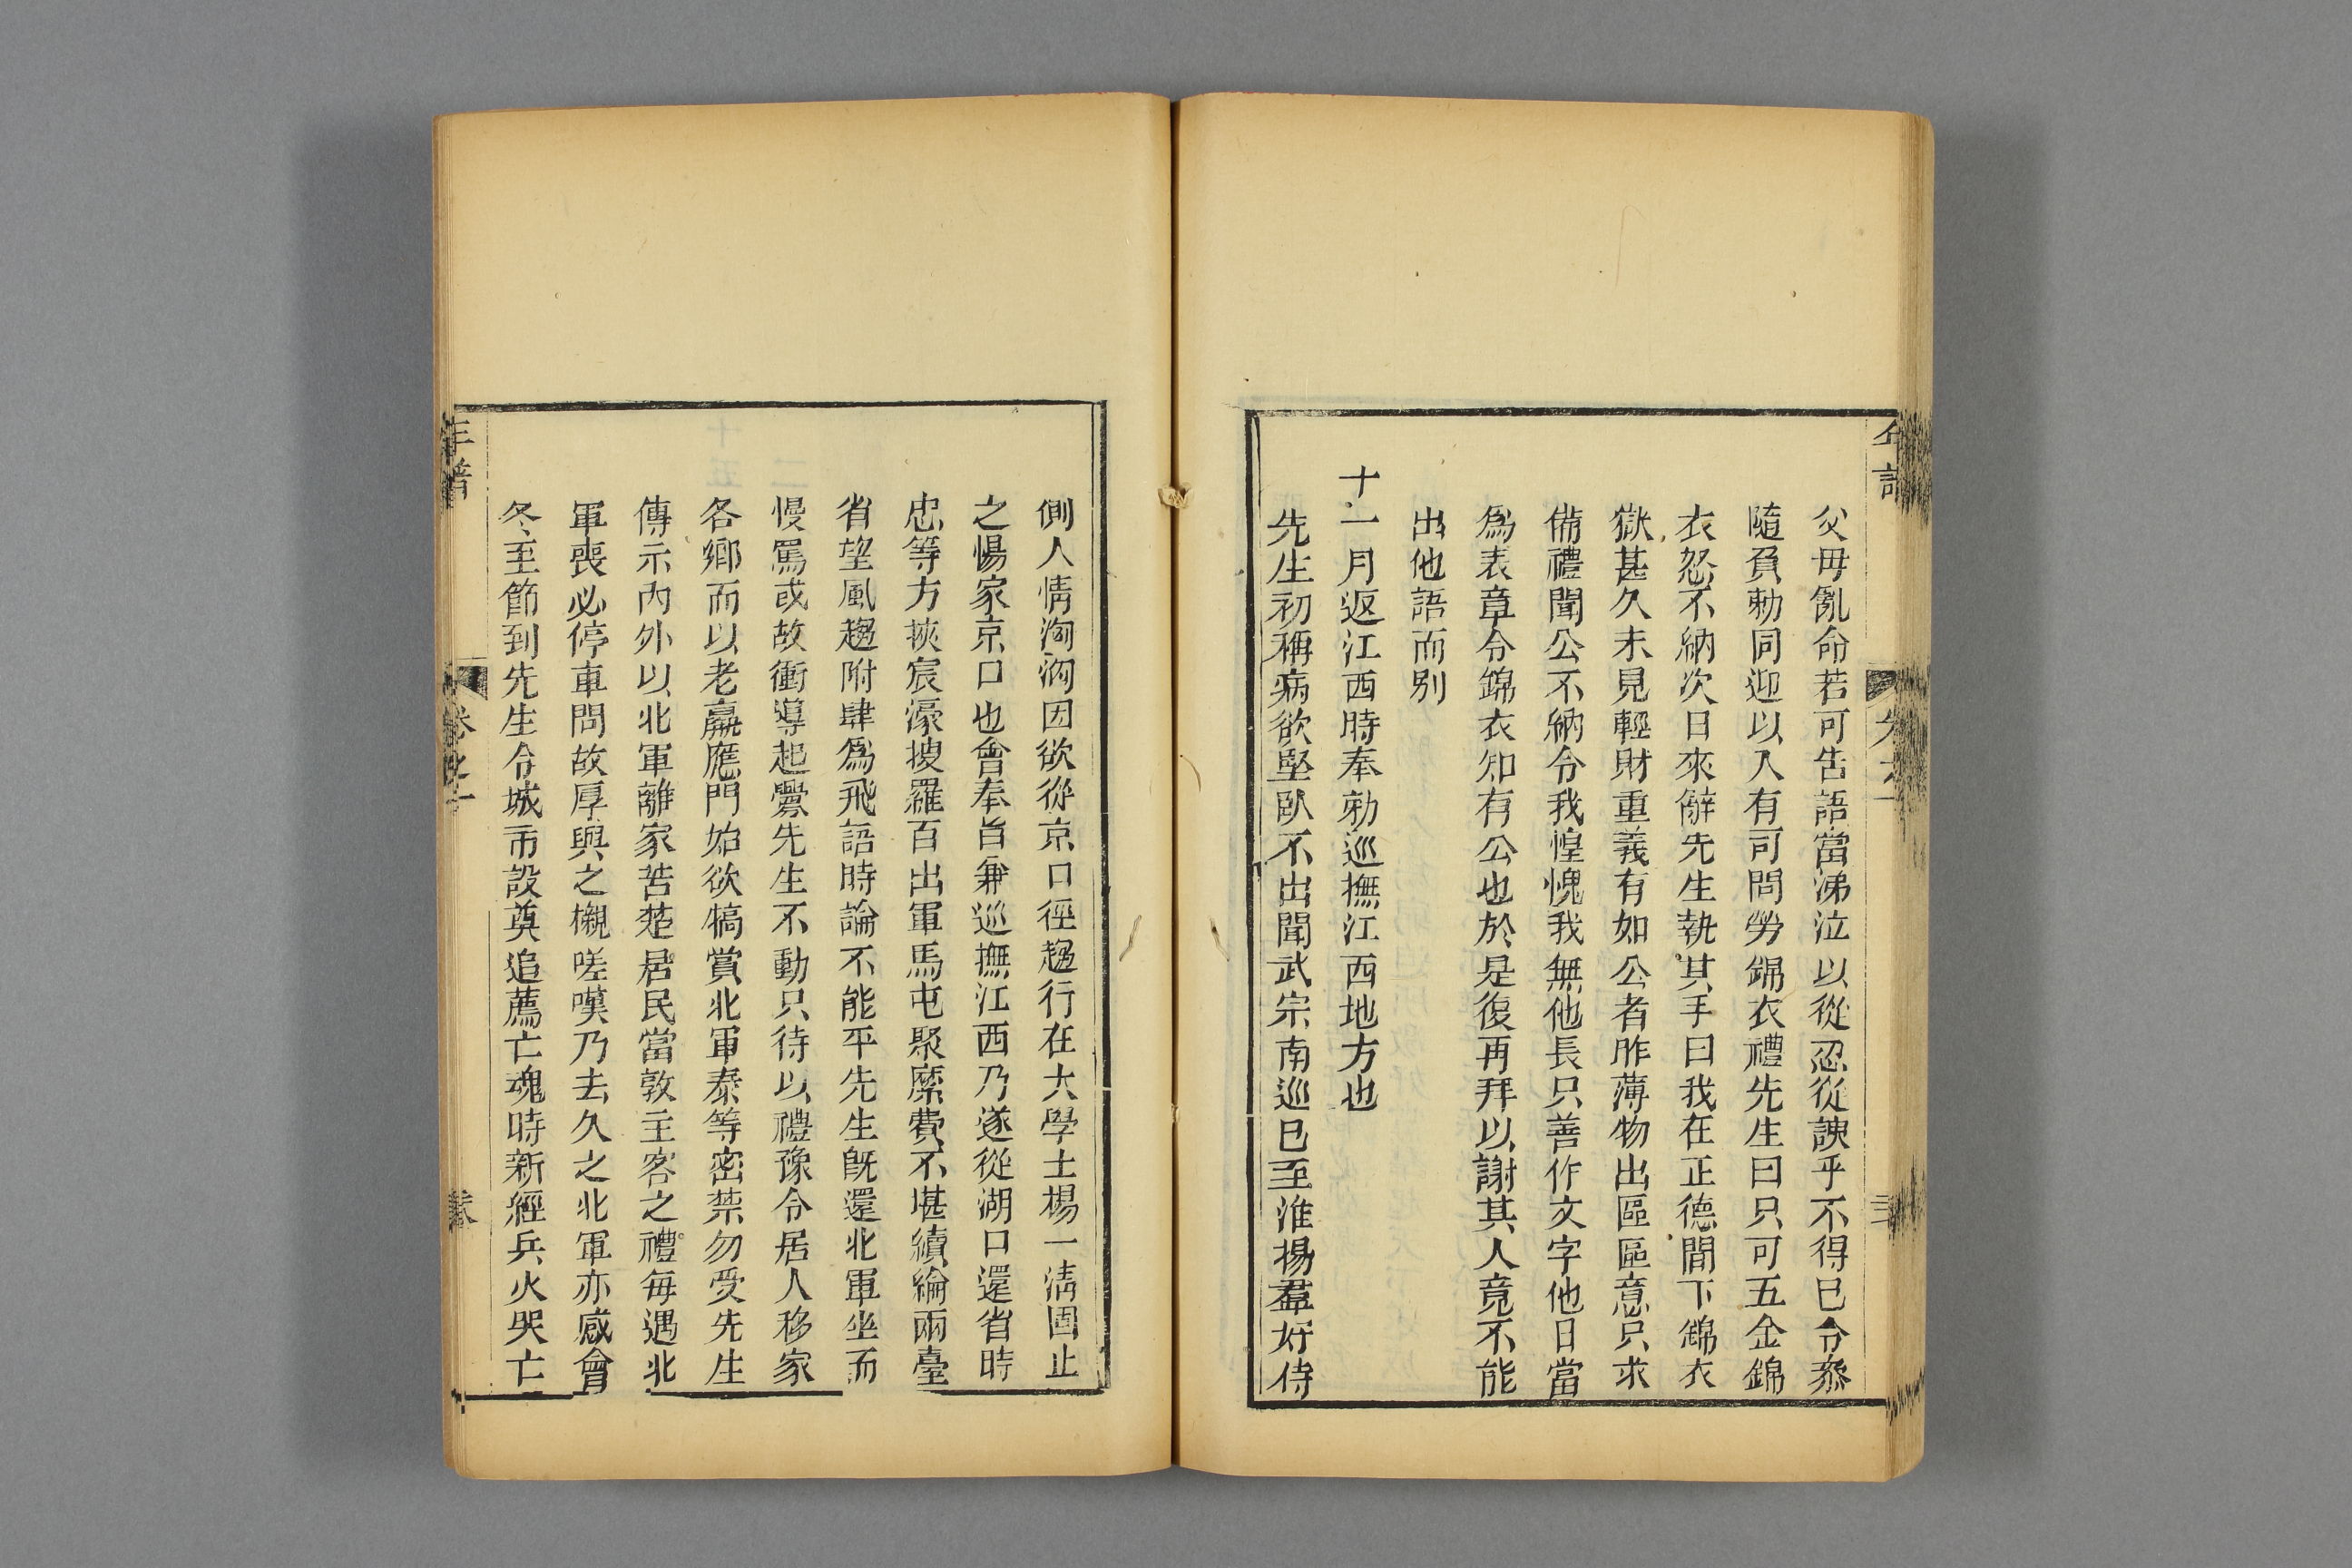 父毋亂命若可告語當涕泣以從忍從諛乎不得已令叅
隨負勅同迎以入有司問勞錦衣禮先生曰只可五金錦
衣怒不納次日來辭先生執其手曰我在正德間下錦衣
獄甚久未見輕財重義有如公者昨薄物出區區意只求
備禮聞公不納令我惶愧我無他長只善作文字他日當
爲表章令錦衣知有公也於是復再拜以謝其人竟不能
出他語而别
十一月返江西時奉勅巡撫江西地方也
先生初稱病欲堅臥不出聞武宗南巡已至淮揚羣奸侍
側人情洶洶因欲從京口徑趨行在大學士楊一清固止
之慯家京口也會奉旨兼巡撫江西乃遂從湖口還省時
忠等方挾宸濠搜羅百出軍馬屯聚糜費不堪續綸兩臺
省望風趨附肆爲飛語時論不能平先生旣還北軍坐而
慢罵或故衝導起釁先生不動只待以禮豫令居人移家
各鄉而以老羸應門始欲犒賞北軍泰等密禁勿受先生
傳示內外以北軍離家苦楚居民當敦主客之禮每遇北
軍喪必停車問故厚與之櫬嗟嘆乃去久之北軍亦感會
冬至節到先生令城市設奠追薦亡魂時新經兵火哭亡
年譜
卷之一